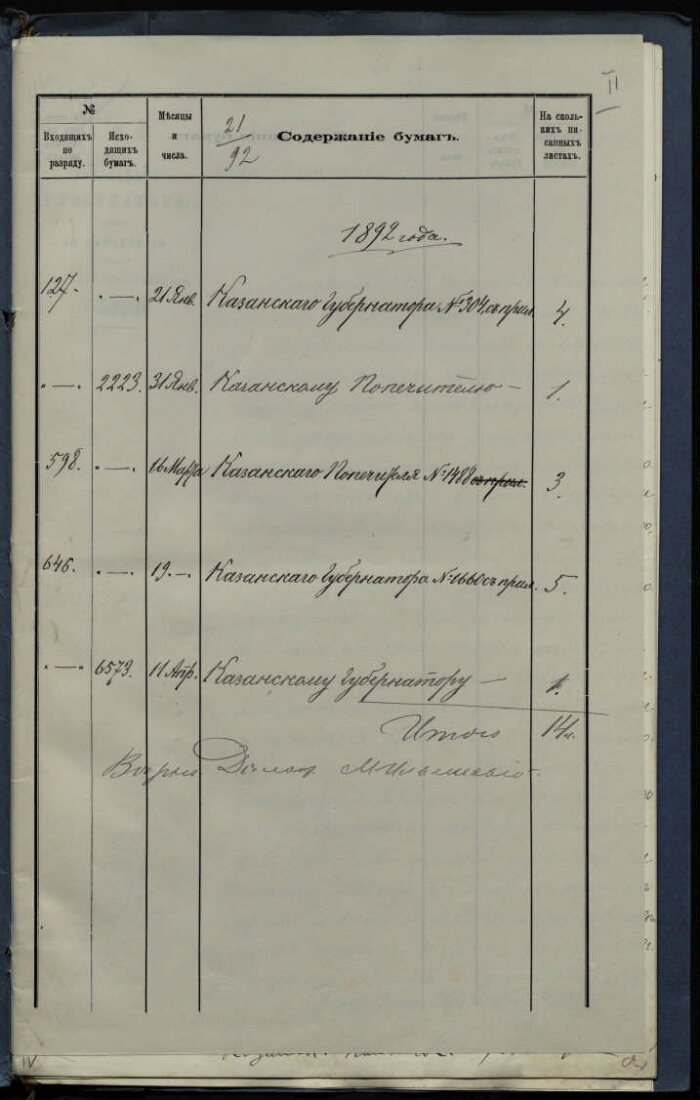 II
№
Входящихъ по разряду.
Исходящихъ бумагъ.
Мѣсяцы и числа.
21/92
Содержаніе бумагъ.
На сколькихъ писанныхъ листахъ.
1892 года.
127. „ — 21 Янв. Казанскаго Губернатора № 304, съ прил. 4.
„ — 2223. 31 Янв. Казанскому Попечителю — 1.
598. „ — 16 Марта Казанскаго Попечителя № 1488 съ прил. 3
646. „ — 19. — Казанскаго Губернатора № 1660 съ прил. 5.
„ — 6573. 11 Апр. Казанскому Губернатору — 1.
Итого 14